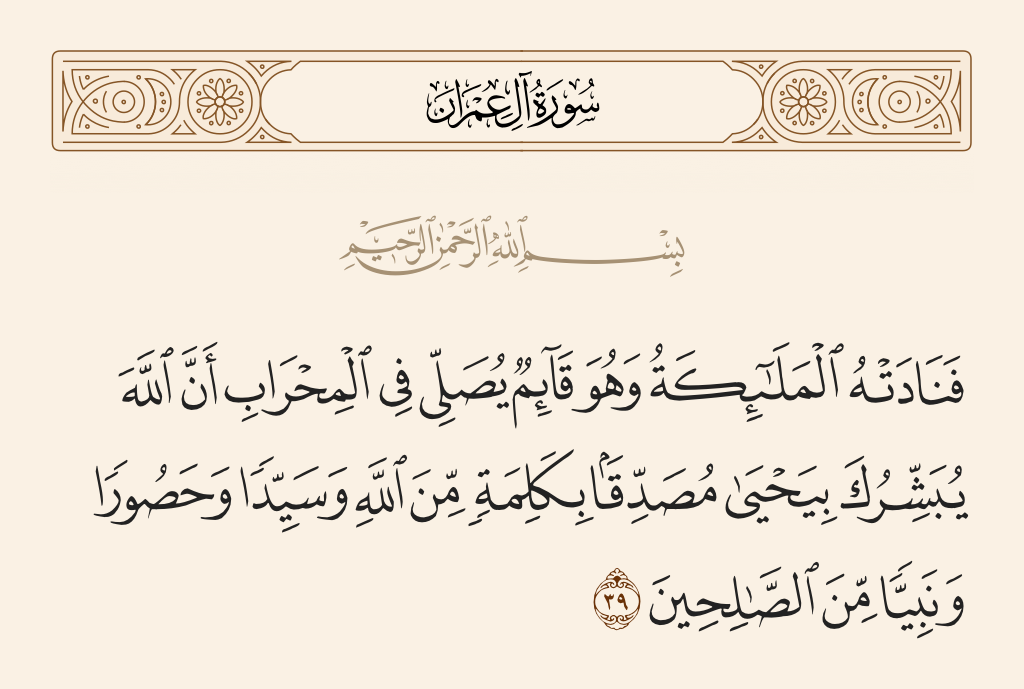 سُورَةُ آلِ عِمْرَانَ
بِسْمِ ٱللَّهِ ٱلرَّحْمَٰنِ ٱلرَّحِيمِ
فَنَادَتْهُ ٱلْمَلَٰٓئِكَةُ وَهُوَ قَآئِمٌ يُصَلِّى فِى ٱلْمِحْرَابِ أَنَّ ٱللَّهَ
يُبَشِّرُكَ بِيَحْيَىٰ مُصَدِّقًۢا بِكَلِمَةٍ مِّنَ ٱللَّهِ وَسَيِّدًا وَحَصُورًا
وَنَبِيًّا مِّنَ ٱلصَّٰلِحِينَ ٣٩